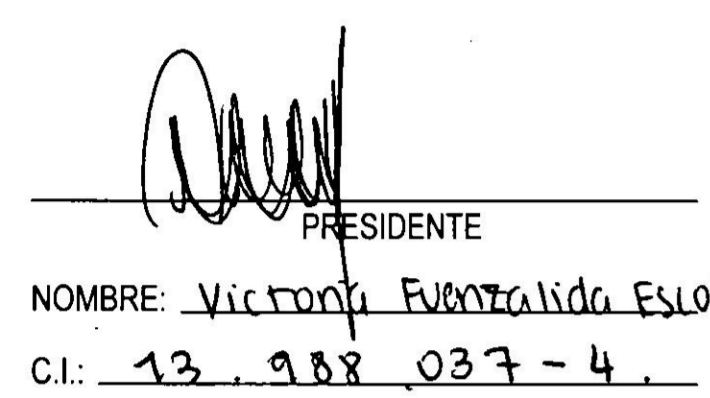 PRESIDENTE
NOMBRE: Victoria Fuenzalida Esco
C.I.: 13.988.037-4.